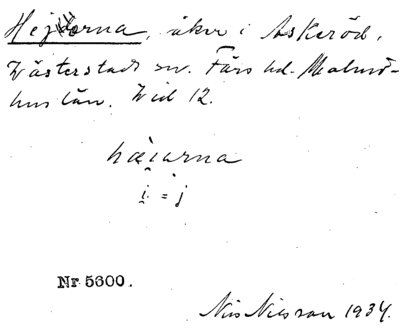 Hejorna, åker i Askeröd,
Västerstads sn. Färs hd. Malmö-
hus län. Wid 12.
hæi̯arna
i̯ = j
Nr 5600.
Nils Nilsson 1934.